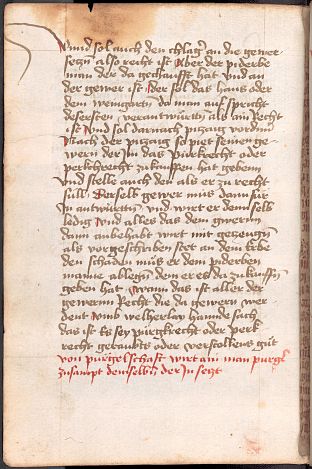 Vnnd sol auch den chlagʳ an die gewer
seczn also recht ist Aber der piderbe
man der da gechaufft hat vnd an
der gewer ist Der sol das haus oder
dem weingartn da man auf spricht
des ersten verantwurtn als am Recht
ist Vnd sol darnach pizaug vordrn̄
Nach der pizaug so piet seinen ge
wern der Im das Purkrecht oder
perkchrecht zukauffen hat gebenn
vnd stelle auch den als er zu recht
süll Derselb gewer mus dann für
In antwürtn̄ vnd wirt er demselb
ledig vnd alles das dem gwerin
dann anbehabt wirt mit geczeugn̄
als vorgeschriben stet an dem Erbe
den schaden müs er dem piderben
manne ablegn̄ dem er es da zukauffn̄
geben hat Wann das ist aller der
gewernn Recht die da gewern wer
dent vmb welherlay hannde sach
das ist Es sey purgkrecht oder perk
recht geraubts oder verstollens gut
von pürgelschafft wirt ain man purgl
zusampt demselbn̄ der In seczt